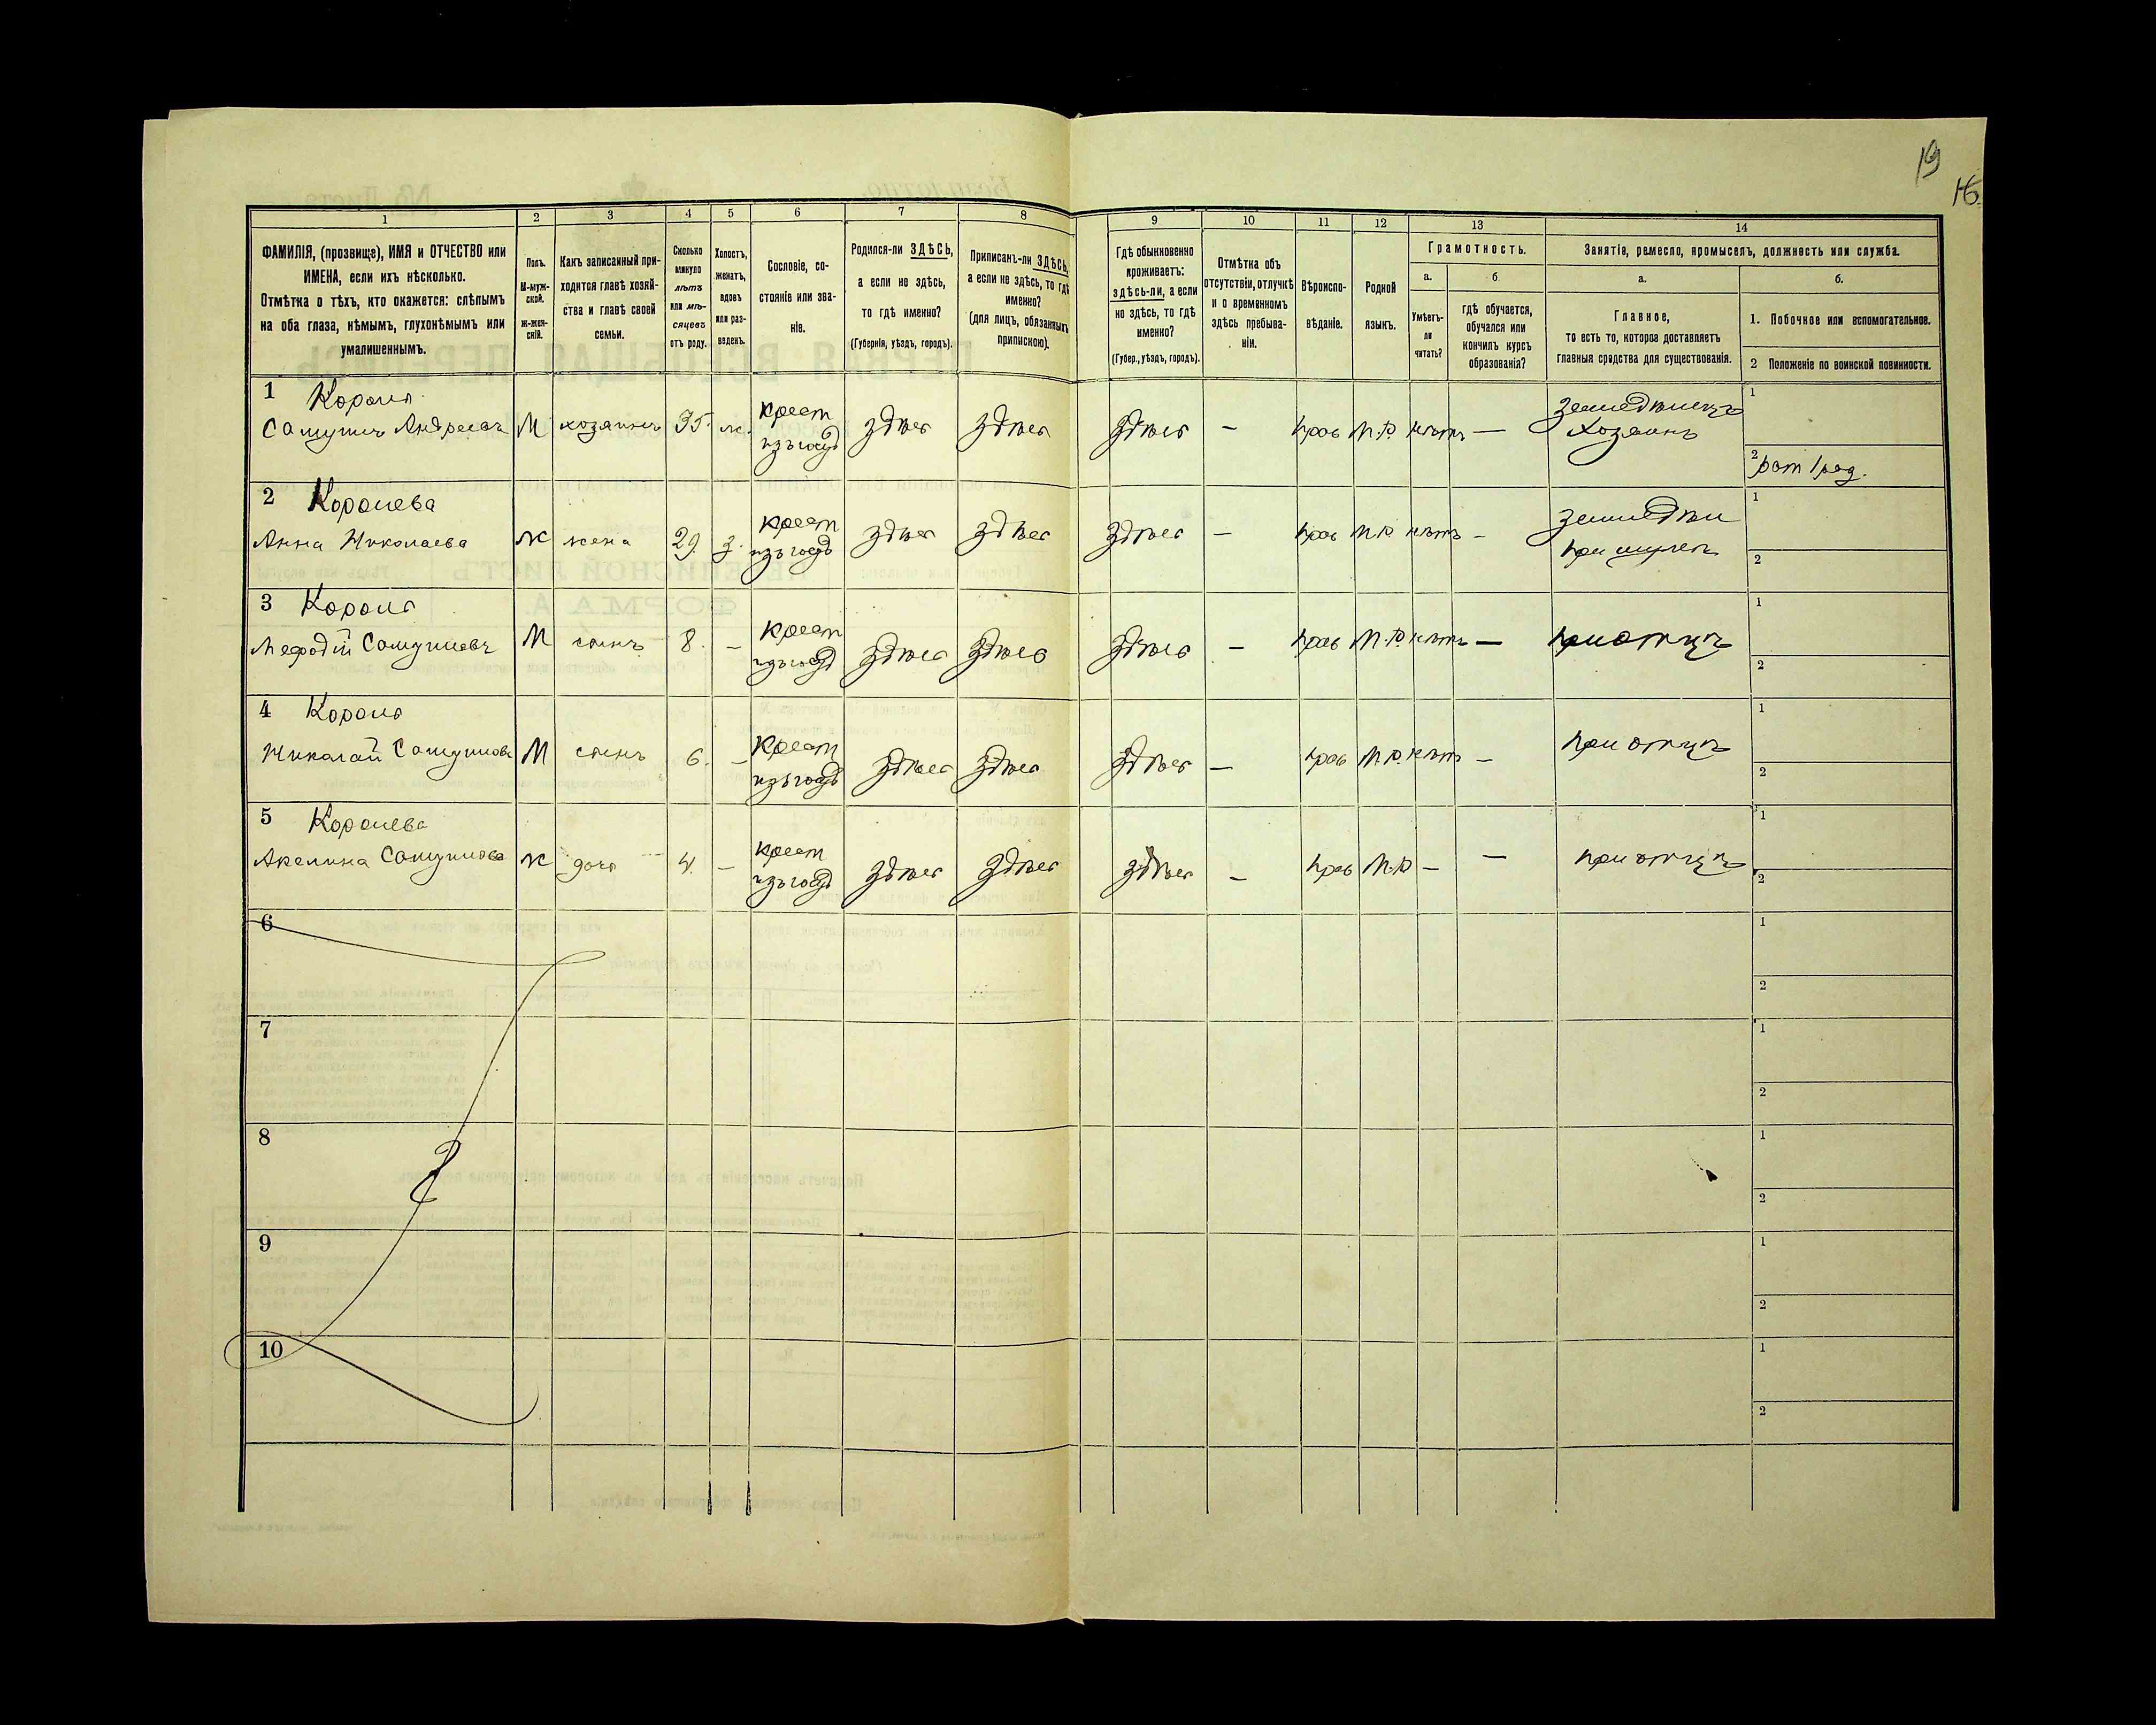 19
16.
1 2 3 4 5 6 7 8 9 10 11 12 13 14
ФАМИЛІЯ, (прозвище), ИМЯ и ОТЧЕСТВО или
ИМЕНА, если ихъ нѣсколько.
Отмѣтка о тѣхъ, кто окажется: слѣпымъ
на оба глаза, нѣмымъ, глухонѣмымъ или
умалишеннымъ.
Полъ.
М-муж-
ской.
ж-жен-
скій.
Какъ записанный при-
ходится главѣ хозяй-
ства и главѣ своей
семьи.
Сколько
минуло
лѣтъ
или мѣ-
сяцевъ
отъ роду.
Холостъ,
женатъ,
вдовъ
или раз-
веденъ.
Сословіе, со-
стояніе или зва-
ніе.
Родился-ли ЗДѢСЬ,
а если не здѣсь,
то гдѣ именно?
(Губернія, уѣздъ, городъ).
Приписанъ-ли ЗДѢСЬ,
а если не здѣсь, то гдѣ
именно?
(для лицъ, обязанныхъ
припискою).
Гдѣ обыкновенно
проживаетъ:
здѣсь-ли, а если
не здѣсь, то гдѣ
именно?
(Губер., уѣздъ, городъ).
Отмѣтка объ
отсутствіи, отлучкѣ
и о временномъ
здѣсь пребыва-
ніи.
Вѣроиспо-
вѣданіе.
Родной
языкъ.
Грамотность.
а.
Умѣетъ-
ли
читать?
б
гдѣ обучается,
обучался или
кончилъ курсъ
образованія?
Занятія, ремесло, промыселъ, должность или служба.
а.
Главное,
то есть то, которое доставляетъ
главныя средства для существованія.
б.
1. Побочное или вспомогательное.
2 Положеніе по воинской повинности.
1 Король
Самуилъ Андреевъ М хозяинъ 35. ж. крест изъ госуд здѣсь здѣсь здѣсь — прав М.Р. нѣтъ — земледѣлецъ
Хозяинъ
1
2 рат 1 раз.
2 Королева
Анна Николаева ж жена 29. з. крест изъ госуд здѣсь здѣсь здѣсь — прав М.Р. нѣтъ — земледѣл
при мужѣ
1
2
3 Король
Мефодій Самуиловъ М сынъ 8. — крест изъ госуд здѣсь здѣсь здѣсь — прав М.Р. нѣтъ — при отцѣ
1
2
4 Король
Николай Самуиловъ М сынъ 6. — крест изъ госуд здѣсь здѣсь здѣсь — прав М.Р. нѣтъ — при отцѣ
1
2
5 Королева
Акелина Самуилова ж дочь 4. — крест изъ госуд здѣсь здѣсь здѣсь — прав М.Р — — при отцѣ
1
2
6
1
2
7
1
2
8
1
2
9
1
2
10
1
2